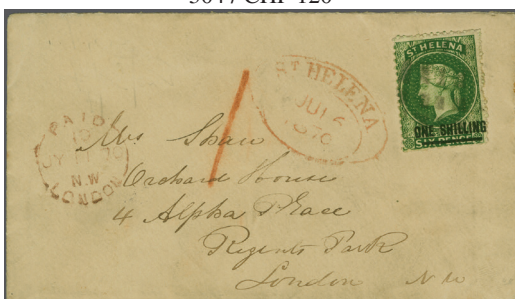 3047 CHF 120
ST HELENA
ONE SHILLING
SIX PENCE
ST HELENA
JUL 6
1870
PAID
N.W
LONDON
Mrs Shaw
Orchard House
4 Alpha Place
Regents Park
London N W